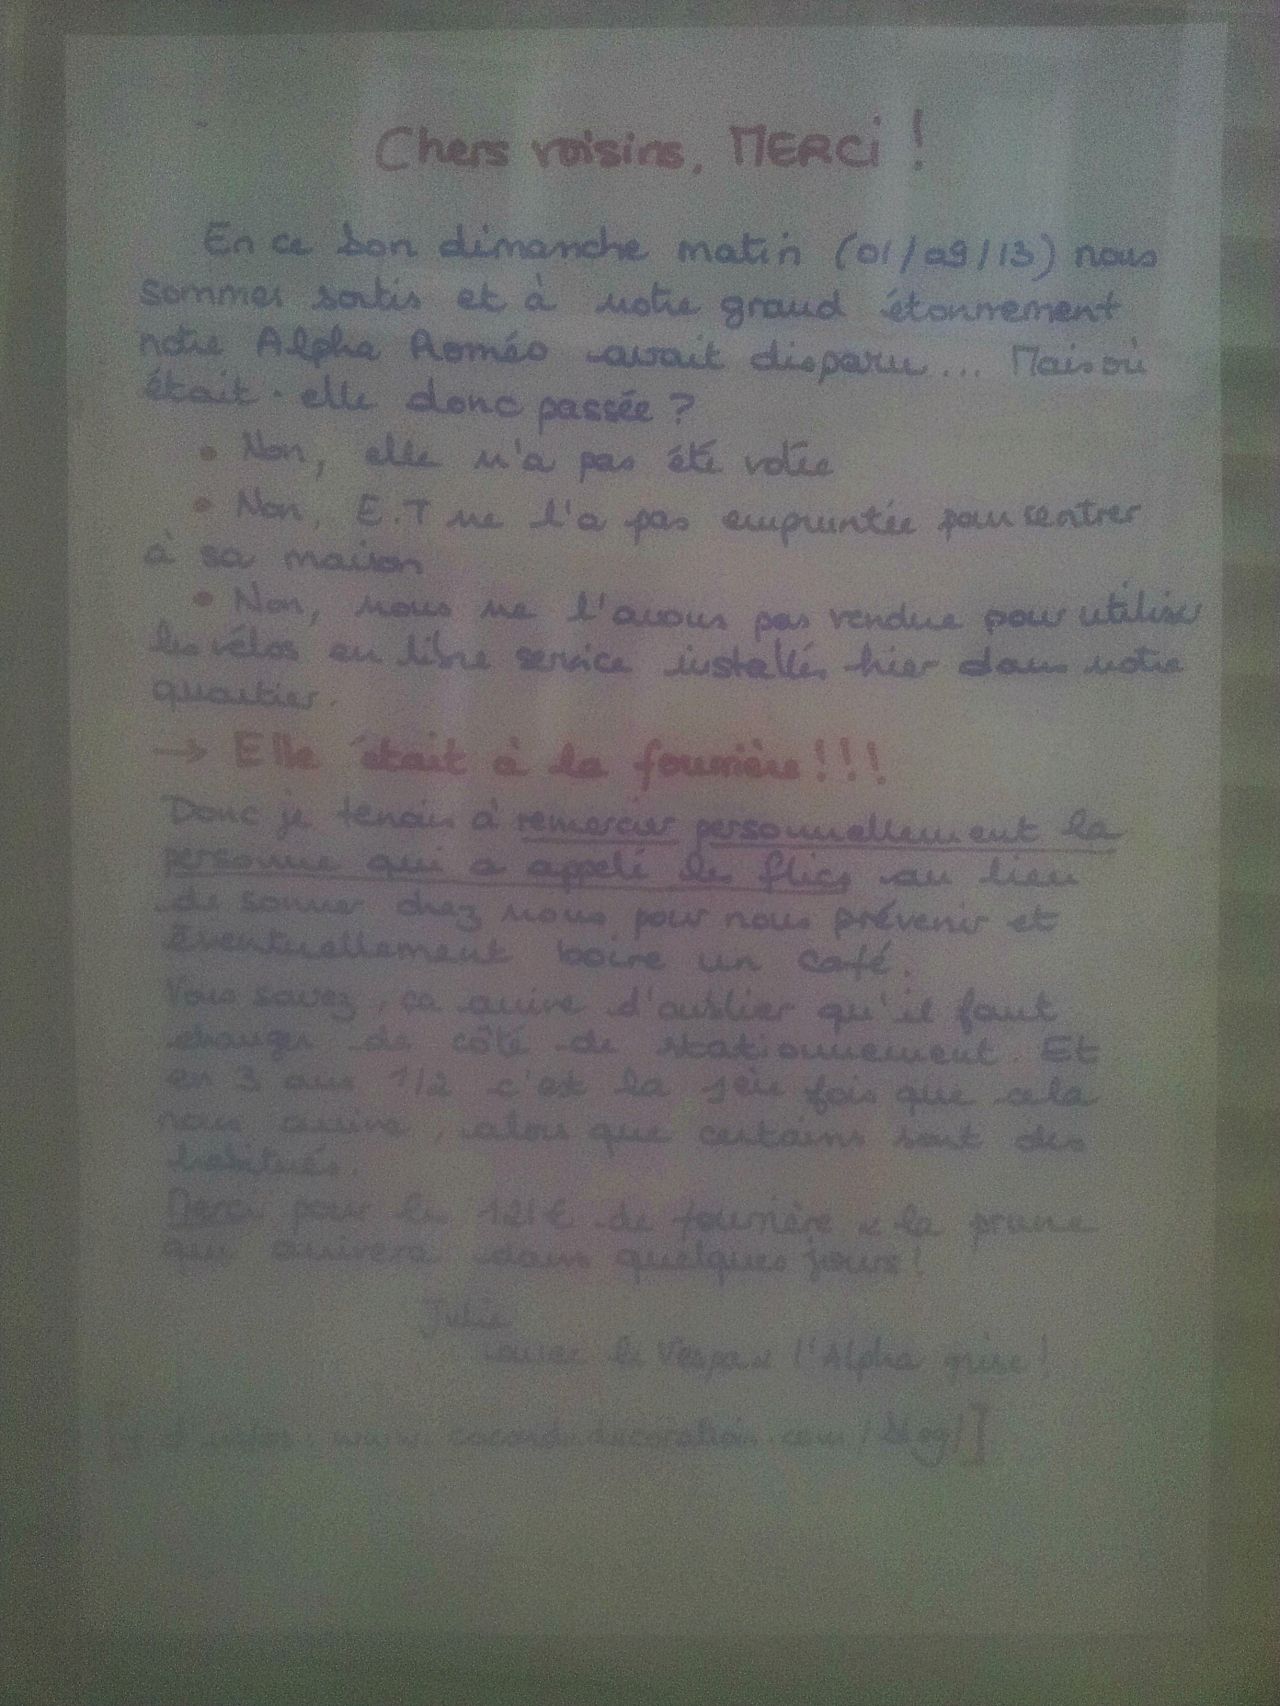 Chers voisins, MERCi !
En ce bon dimanche matin (01/09/13) nous
sommes sortis et à notre grand étonnement
notre Alpha Roméo avait disparu... Mais où
était-elle donc passée ?
• Non, elle n'a pas été volée
• Non, E.T ne l'a pas empruntée pour rentrer
à sa maison
• Non, nous ne l'avons pas vendue pour utiliser
les vélos en libre service installés hier dans notre
quartier.
→ Elle était à la fourrière!!!
Donc je tenais à remercier personnellement la
personne qui a appelé les flics au lieu
de sonner chez nous pour nous prévenir et
éventuellement boire un café.
Vous savez, ça arrive d'oublier qu'il faut
changer de côté de stationnement. Et
en 3 ans 1/2 c'est la 1ère fois que cela
nous arrive, alors que certains sont des
habitués.
Merci pour les 121€ de fourrière & la prune
qui arrivera dans quelques jours!
Julie
la Vespa & l'Alpha grise!
[+ d'infos: www. .com/blog/]